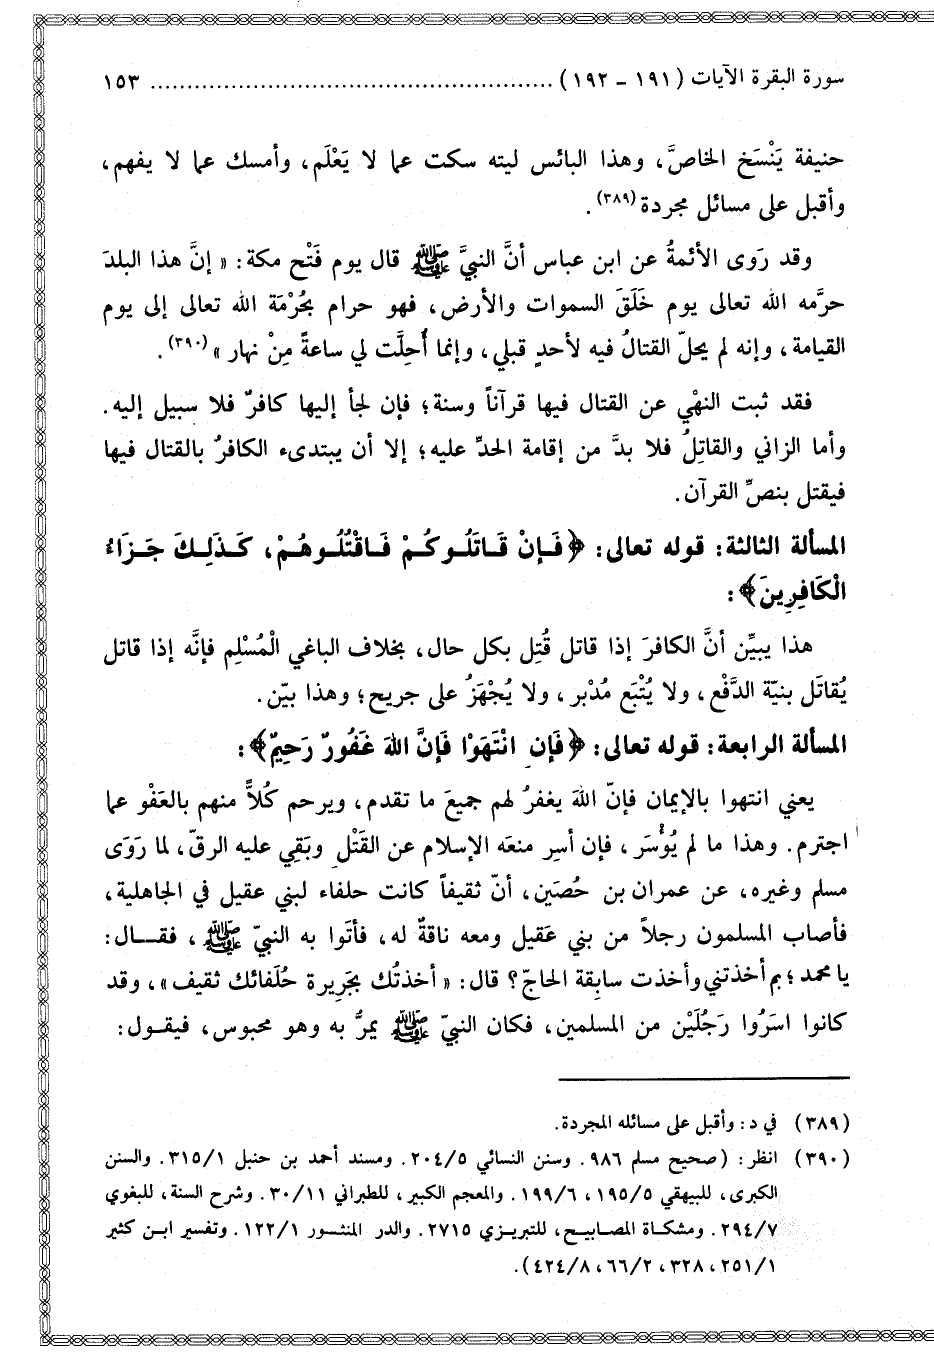 سورة البقرة الآيات (١٩١ – ١٩٢) ............................................................ ١٥٣
حنيفة يَنْسَخ الخاصَّ، وهذا البائس ليته سكت عما لا يَعْلَم، وأمسك عما لا يفهم،
وأقبل على مسائل مجردة(٣٨٩).
وقد رَوى الأئمةُ عن ابن عباس أنَّ النبيَّ ﷺ قال يوم فَتْح مكة: « إنَّ هذا البلدَ
حرَّمه الله تعالى يوم خَلَقَ السموات والأرض، فهو حرام بحُرْمَة الله تعالى إلى يوم
القيامة، وإنه لم يحلّ القتالُ فيه لأحدٍ قبلي، وإنما أُحِلَّت لي ساعةً مِنْ نهار »(٣٩٠).
فقد ثبت النهْي عن القتال فيها قرآناً وسنة؛ فإن لجأ إليها كافرٌ فلا سبيل إليه.
وأما الزاني والقاتِلُ فلا بدَّ من إقامة الحدِّ عليه؛ إلا أن يبتدىء الكافرُ بالقتال فيها
فيقتل بنصِّ القرآن.
المسألة الثالثة: قوله تعالى: ﴿فَإِنْ قَاتَلُوكُمْ فَاقْتُلُوهُمْ، كَذَلِكَ جَزَاءُ
الْكَافِرِينَ﴾:
هذا يبيِّن أنَّ الكافرَ إذا قاتل قُتِل بكل حال، بخلاف الباغي الْمُسْلِم فإنَّه إذا قاتل
يُقاتَل بنيّة الدَّفْع، ولا يُتْبَع مُدْبر، ولا يُجْهَزُ على جريح؛ وهذا بيّن.
المسألة الرابعة: قوله تعالى: ﴿فَإِنِ انْتَهَوْا فَإِنَّ اللهَ غَفُورٌ رَحِيمٌ﴾:
يعني انتهوا بالإيمان فإنّ اللهَ يغفرُ لهم جميعَ ما تقدم، ويرحم كُلاًّ منهم بالعَفْو عما
اجترم. وهذا ما لم يُؤْسَر، فإن أسِر منعَه الإسلام عن القَتْلِ وبَقِي عليه الرقّ، لما رَوَى
مسلم وغيره، عن عمران بن حُصَين، أنّ ثقيفاً كانت حلفاء لبني عقيل في الجاهلية،
فأصاب المسلمون رجلاً من بني عَقيل ومعه ناقةٌ له، فأتَوا به النبيّ ﷺ، فقـال:
يا محمد؛ بم أخذتني وأخذت سابِقة الحاجّ؟ قال: « أخذتُك بجَرِيرة حُلَفائك ثقيف»، وقد
كانوا اسَرُوا رَجُلَيْن من المسلمين، فكان النبيّ ﷺ يمرُّ به وهو محبوس، فيقـول:
(٣٨٩) في د: وأقبل على مسائله المجردة.
(٣٩٠) انظر: (صحيح مسلم ٩٨٦. وسنن النسائي ٢٠٤/٥. ومسند أحمد بن حنبل ٣١٥/١. والسنن
الكبرى، للبيهقي ١٩٥/٥، ١٩٩/٦. والمعجم الكبير، للطبراني ٣٠/١١. وشرح السنة، للبغوي
٢٩٤/٧. ومشكاة المصابيح، للتبريزي ٢٧١٥. والدر المنثور ١٢٢/١. وتفسير ابن كثير
٢٥١/١، ٣٢٨، ٦٦/٢، ٤٢٤/٨).